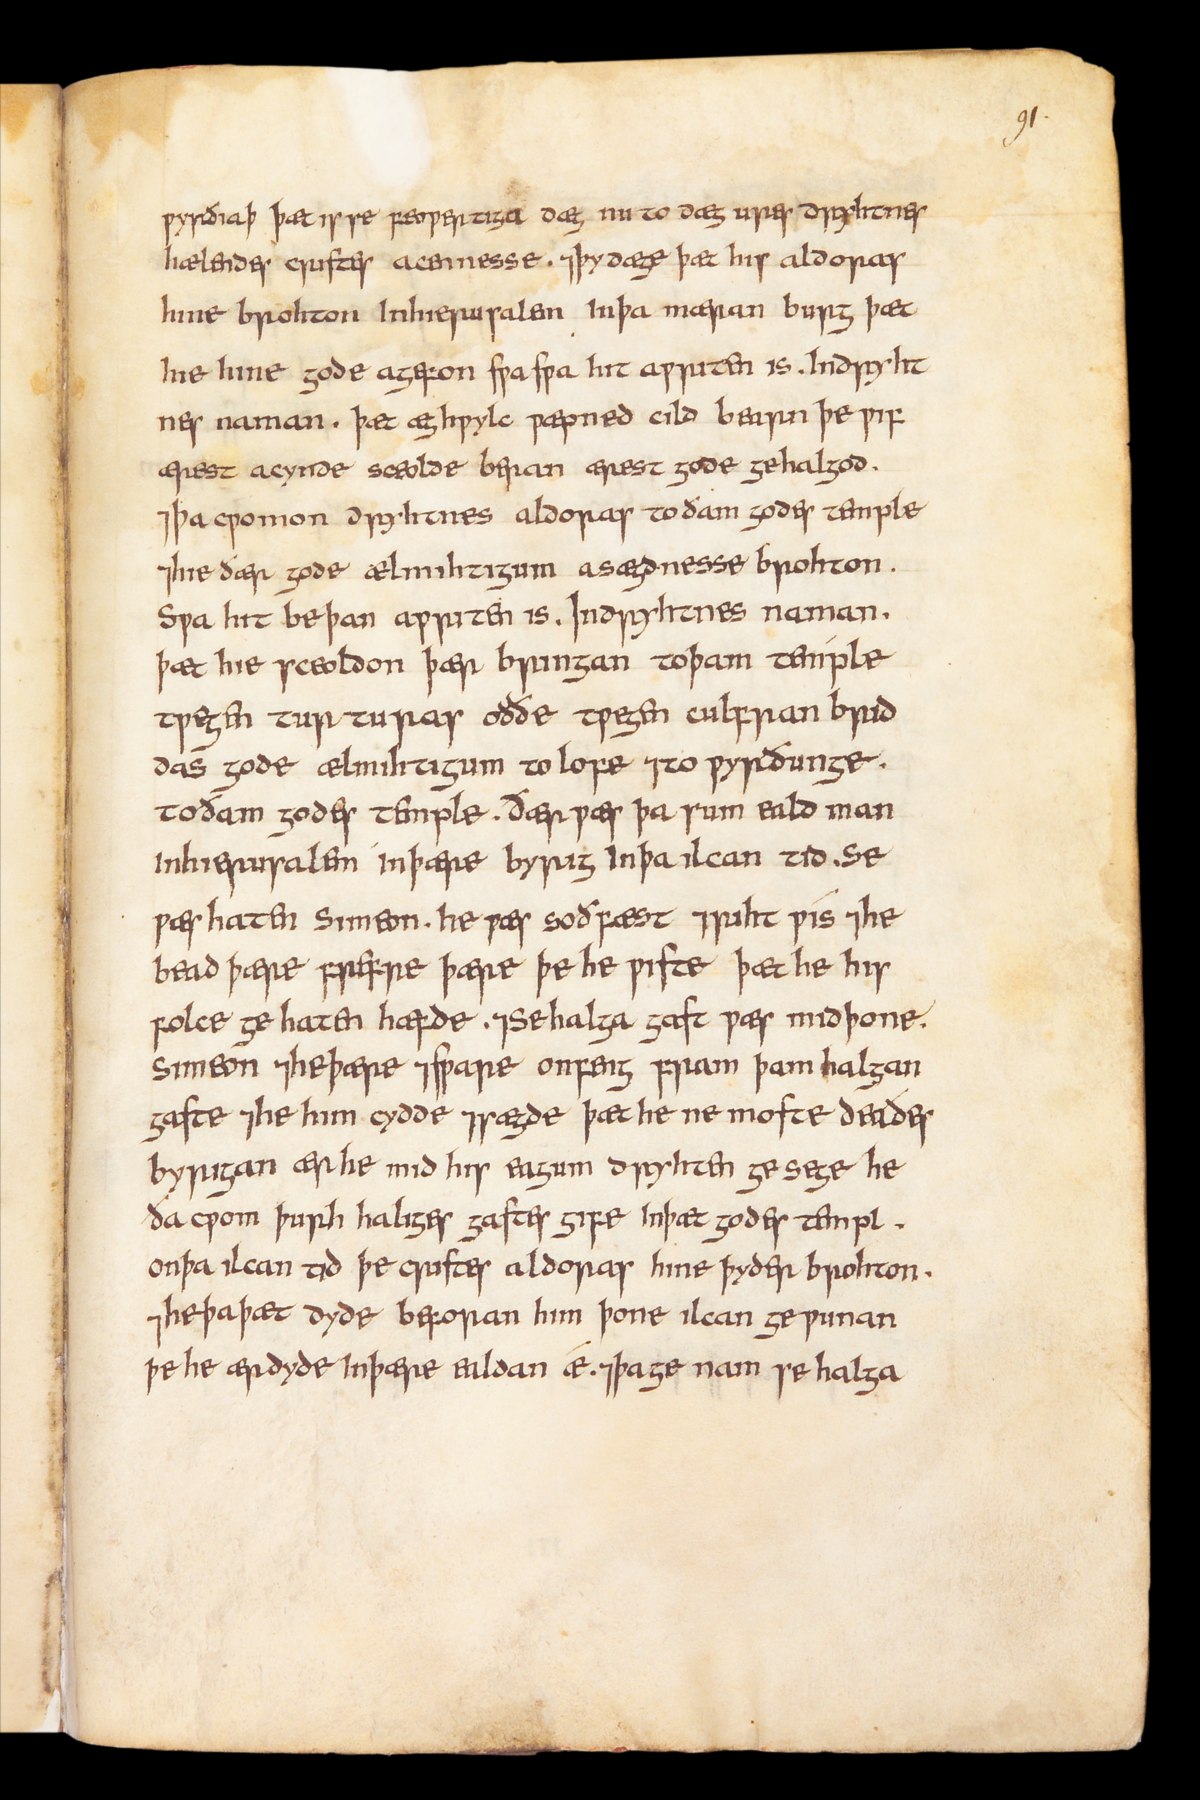 91.
ƿyrðiaþ þæt is se feoƿertiga dæg nu to dæg ures dryhtnes
hælendes cristes acennesse . ⁊ þy dæge þæt his aldoras
hine brohton in hierusalem in þa mæran burg þæt
hie hine gode agefon sƿa sƿa hit aƿriten is . In dryht
nes naman . þæt æghƿylc ƿæpned cild bearn þe ƿif
ærest acynde sceolde beran ærest gode gehalgod .
⁊ þa cƿomon dryhtnes aldoras to ðam godes temple
⁊ hie ðær gode ælmihtigum asægdnesse brohton .
Sƿa hit be þan aƿriten is . In dryhtnes naman .
þæt hie sceoldon þær bringan to þam temple
tƿegen turturas oððe tƿegen culfran brid
das gode ælmihtigum to lofe ⁊ to ƿyrðunge .
to ðam godes temple . ðær ƿæs þa sum eald man
in hierusalem in þære byrig in þa ilcan tid . Se
ƿæs haten Simeon . he ƿæs soðfæst ⁊ riht ƿis ⁊ he
bead þære frefre þære þe he ƿiste þæt he his
folce ge haten hæfde . ⁊ Se halga gast ƿæs mid þone .
Simeon ⁊ he þære ⁊sƿare onfeng fram þam halgan
gaste ⁊ he him cydde ⁊ sægde þæt he ne moste deaðes
byrigan ær he mid his eagum dryhten ge sege he
ða cƿom þurh haliges gastes gife in þæt godes templ .
on þa ilcan tid þe cristes aldoras hine þyder brohton .
⁊ he þa þæt dyde beforan him þone ilcan ge ƿunan
þe he ær dyde in þære ealdan æ . ⁊ þa ge nam se halga